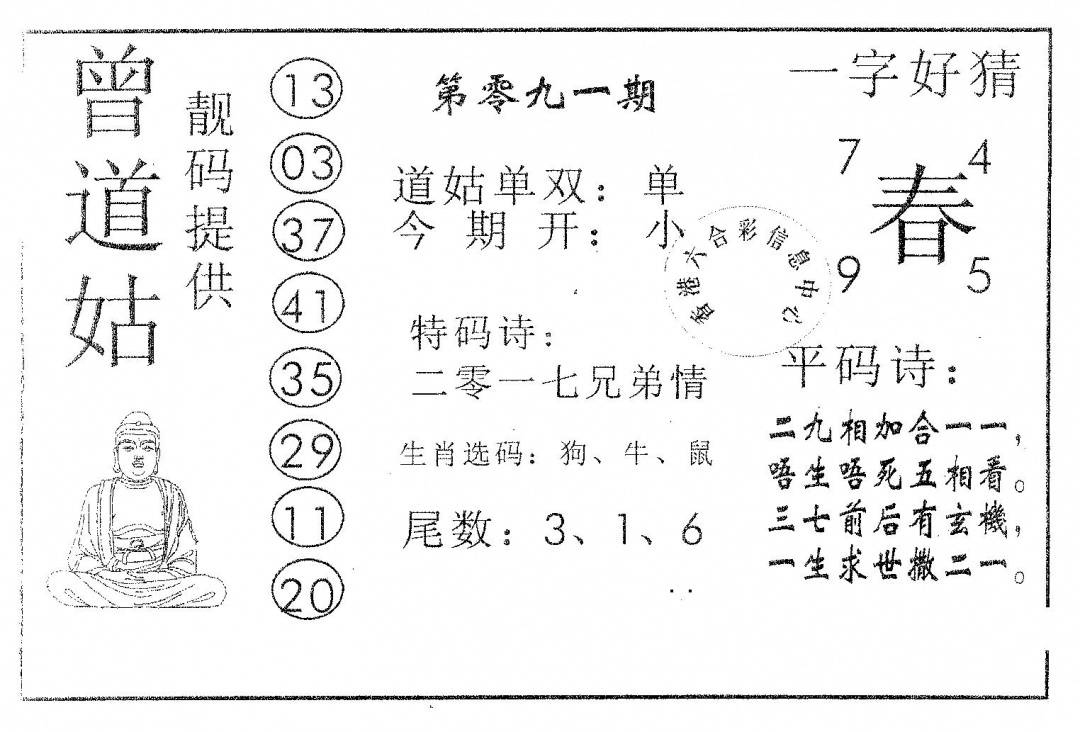 曾道姑
靓码提供
13
03
37
41
35
29
11
20
第零九一期
道姑单双：单
今期开：小
特码诗：
二零一七兄弟情
生肖选码：狗、牛、鼠
尾数：3、1、6
香港六合彩信息中心
一字好猜
7 4
春
9 5
平码诗：
二九相加合一一，
唔生唔死五相看。
三七前后有玄機，
一生求世撒二一。